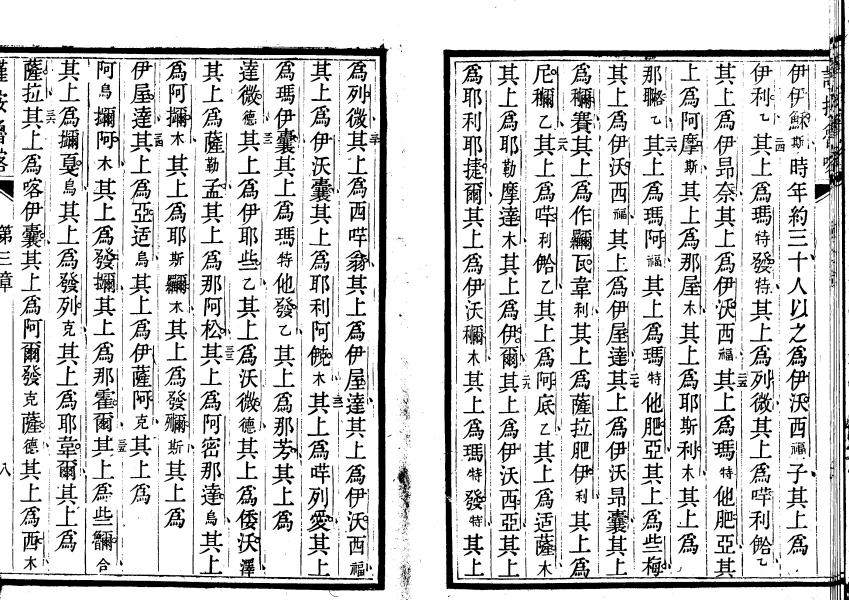 伊伊穌斯時年約三十人以之爲伊沃西福子其上爲
伊利乙二四其上爲瑪特發特其上爲列微其上爲㗚利乙
其上爲伊昂奈其上爲伊沃西福二五其上爲瑪特他肥亞其
上爲阿摩斯其上爲那屋木其上爲耶斯利木其上爲
那乙二六其上爲瑪阿福其上爲瑪特他肥亞其上爲些梅
其上爲伊沃西福其上爲伊屋達二七其上爲伊沃昂囊其上
爲賽其上爲作爾瓦韋利其上爲薩拉肥伊利其上爲
尼乙二八其上爲㗚利乙其上爲阿底乙其上爲适薩木
其上爲耶勒摩達木其上爲伊爾二九其上爲伊沃西亞其
上爲耶利耶捷爾其上爲伊沃木其上爲瑪特發特其上
爲列微三十其上爲西㗚翁其上爲伊屋達其上爲伊沃西福
其上爲伊沃囊其上爲耶利阿木三一其上爲㗚列愛其上
爲瑪伊囊其上爲瑪特他發乙其上爲那芳其上爲
達微德三二其上爲伊耶些乙其上爲沃微德其上爲倭沃澤
其上爲薩勒孟其上爲那阿松三三其上爲阿密那達烏其上
爲阿木其上爲耶斯木其上爲發斯其上爲
伊屋達三四其上爲亞适烏其上爲伊薩阿克其上爲
阿烏阿木其上爲發其上爲那霍爾三五其上爲些合
其上爲戛烏其上爲發列克其上爲耶韋爾其上爲
薩拉三六其上爲喀伊囊其上爲阿爾發克薩德其上爲西木
第三章
八